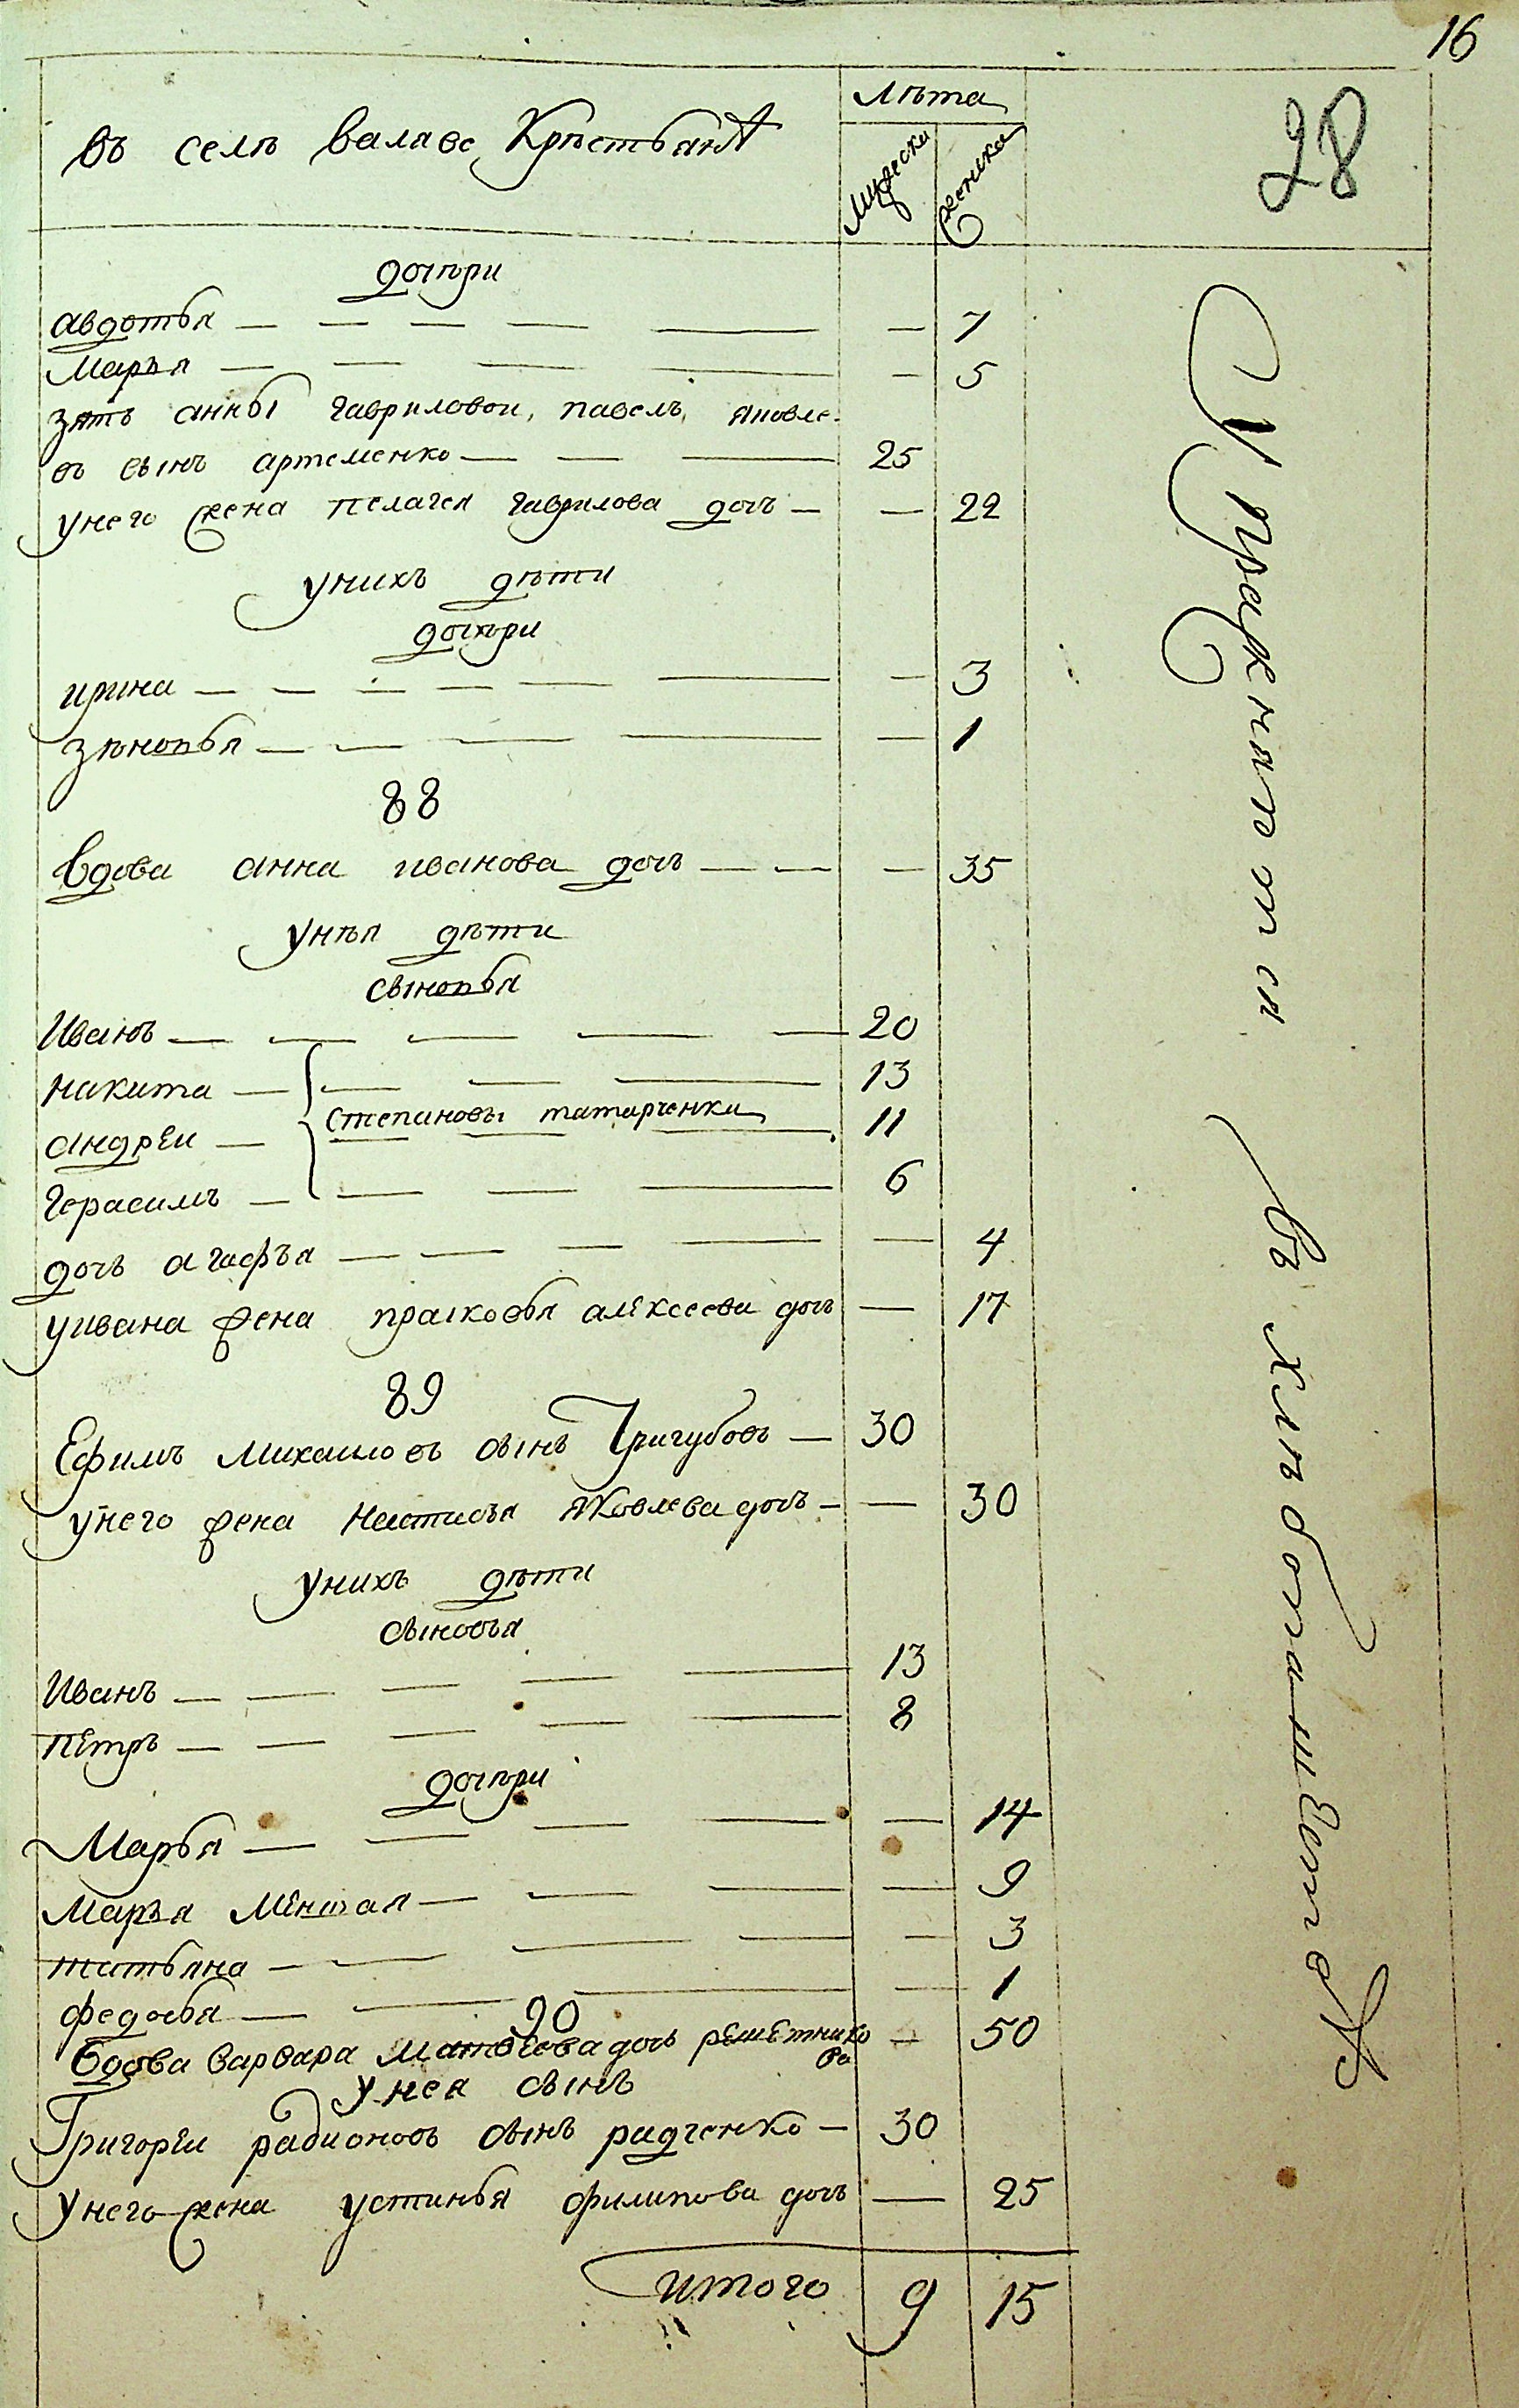 16
28
въ селѣ валавс Крѣстьянъ
Лѣта
Мужеска
женска
дочѣри
авдотья — 7
Маръя — 5
зять анны гавриловои, павелъ, яковле-
въ сынъ артеменко — 25
унего жена пелагея гаврилова дочъ — 22
унихъ дѣти
дочѣри
ирина — 3
зѣновья — 1
88
вдова анна иванова дочъ — 35
унѣя дѣти
сыновья
Иванъ — 20
никита — 13
степановы татарченки
андреи — 11
герасимъ — 6
дочъ агафъя — 4
уивана жена прасковья алексеева дочъ — 17
89
Ефимъ михаиловъ сынъ Тригубовъ — 30
унего жена настасъя яковлева дочъ — 30
унихъ дѣти
сыновъя
Иванъ — 13
петръ — 8
дочѣри
Марья — 14
Маръя меншая — 9
татьяна — 3
федосья — 1
90
вдова варвара матвѣева дочъ решетнико
ва — 50
унея сынъ
Григореи радионовъ сынъ радченко — 30
Унего жена устинья филипова дочъ — 25
итого 9 15
Упражняются
въ хлѣбопашестве